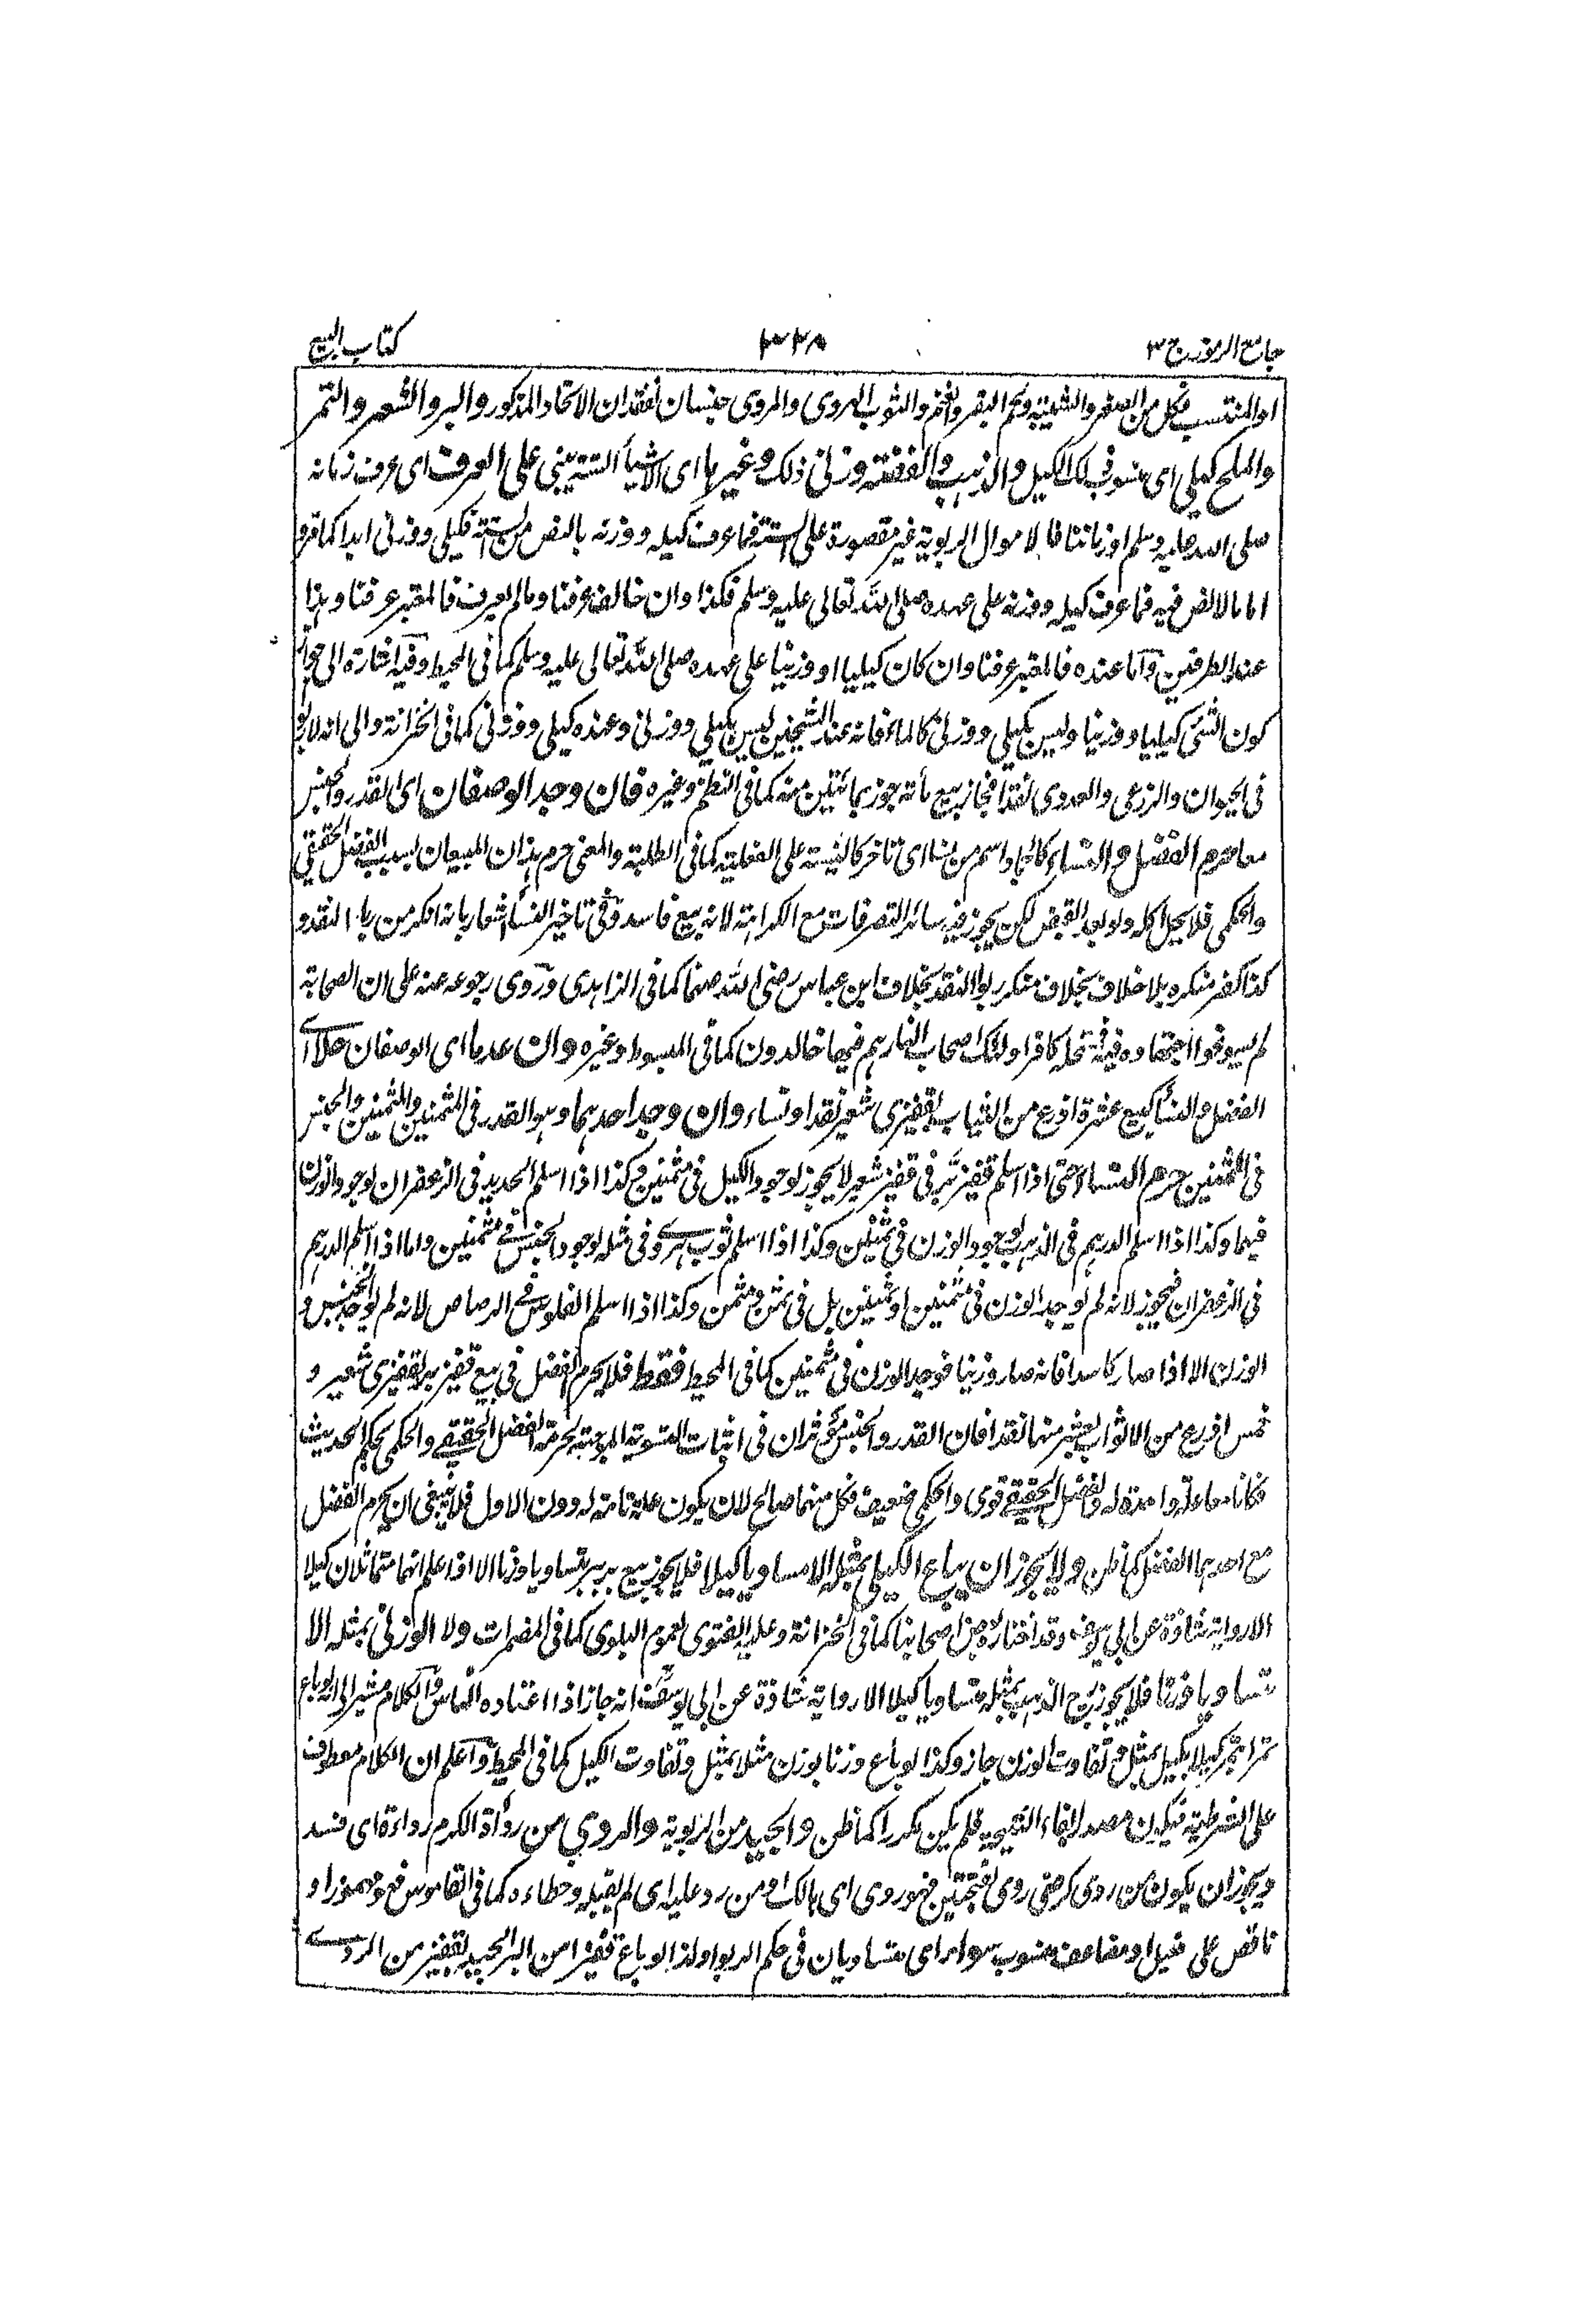 جامع الرموز ج ٣
٣٣٨
كتاب البيع
او المنتسب فكل من الصفر والشبه ولحم البقر والغنم والثوب الهروى والمروى جنسان لفقدان الاتحاد المذكور والبر والشعير والتمر
والملح كيلي اى منسوب الى الكيل والذهب والفضة وزنى ذلك وغيرها اى الاشياء الستة يبنى على العرف اى عرف زمانه
صلى الله عليه وسلم او زماننا فالاموال الربوية غير مقصورة على الستة فما عرف كيله ووزنه بالنص من الستة فكيلى ووزنى ابدا كما قرو
اما ما لا نص فيه فما عرف كيله ووزنه على عهده صلى الله تعالى عليه وسلم فكذا وان خالف عرفنا وما لم يعرف فالمعتبر عرفنا وهذا
عند الطرفين واما عنده فالمعتبر عرفنا وان كان كيليا او وزنيا على عهده صلى الله تعالى عليه وسلم كما فى المحيط وفيه اشارة الى جواز
كون الشئ كيليا ووزنيا وليس بكيلي ووزنى كالماء فانه عند الشيخين ليس بكيلي ووزنى وعنده كيلى ووزنى كما فى الخزانة والى انه لا ربوا
فى الحيوان والزرعى والعددى نقدا فجاز بيع مائة جوز بمائتين منه كما فى النظم وغيره فان وجد الوصفان اى القدر والجنس
معا حرم الفضل والنساء كالجاد اسم من نسا اى تاخر كالنسيئة على الفعلية كما فى الطلبة والمعنى حرم هذان المبيعان بسبب الفضل الحقيقى
والحكمى فلا يحل اكله ولو بعد القبض لكن يجوز فيه سائر التصرفات مع الكراهة لانه بيع فاسد وفى تاخير النسأ اشعار بانه انكر من ربا النقد و
كذا كفر منكره بلا خلاف بخلاف منكر ربوا النقد بخلاف ابن عباس رضى الله عنهما كما فى الزاهدى وروى رجوعه عنه على ان الصحابة
لم يسوغوا اجتهاده فيه فتحله كافر اولئك اصحاب النار هم فيها خالدون كما فى المبسوط وغيره وان عدما اى الوصفان حلا اى
الفضل والنسأ كبيع عشرة اذرع من الثياب بقفيزى شعير نقدا ونساء وان وجد احدهما وهو القدر فى المثمنين والثمنين والجنس
فى المثمنين حرم النساء حتى اذا اسلم قفيز بر فى قفيز شعير لا يجوز لوجود الكيل فى مثمنين وكذا اذا اسلم الحديد فى الزعفران لوجود الوزن
فيهما وكذا اذا اسلم الدرهم فى الذهب لوجود الوزن فى ثمنين وكذا اذا اسلم ثوب هروى فى مثله لوجود الجنس فى مثمنين واما اذا اسلم الدرهم
فى الزعفران فيجوز لانه لم يوجد الوزن فى مثمنين او ثمنين بل فى ثمن ومثمن وكذا اذا اسلم الفلوس فى الرصاص لانه لم يوجد الجنس و
الوزن الا اذا صار كاسدا فانه صار وزنيا فوجد الوزن فى مثمنين كما فى المحيط فقط فلا يحرم الفضل فى بيع قفيز بر بقفيزى شعير و
خمس اذرع من الاثواب بعشر منها نقدا فان القدر والجنس مؤثران فى اثبات التسوية الموجبة لحرمة الفضل الحقيقى والحكمى بحكم الحديث
فكانا معا علة واحدة له والفضل الحقيقى قوى والحكمى ضعيف فكل منهما صالح لان يكون علة تامة له دون الاول فلا ينبغى ان يحرم الفضل
مع احدهما الفضل كما ظن ولا يجوز ان يباع الكيلى بمثله الا مساويا كيلا فلا يجوز بيع بر ببر متساويا وزنا الا اذا علم انهما متماثلان كيلا
الا رواية شاذة عن ابى يوسف وقد اختاره بعض اصحابنا كما فى الخزانة وعليه الفتوى لعموم البلوى كما فى المضمرات ولا الوزنى بمثله الا
متساويا وزنا فلا يجوز بيع الذهب بمثله متساويا كيلا الا رواية شاذة عن ابى يوسف انه جاز اذا اعتاده الناس والكلام مشير الى انه لو باع
تمرا بتمر كيلا بكيل بمثل وتفاوت الوزن جاز وكذا لو باع وزنا بوزن مثلا بمثل وتفاوت الكيل كما فى المحيط واعلم ان الكلام معطوف
على الشرطية فيكون مصدر بفاء النتيجة فلم يكن مكررا كما ظن والجيد من الربوية والردي من ردأة الكرم رداءة اى فسد
ويجوز ان يكون من ردى كرضى روى بفتحتين فهو ردى اى هالك او من رد عليه اى لم يقبله وخطاءه كما فى القاموس فهو مهموز او
ناقص على فعيل او مضاعف منسوب سواء اى متساويان فى حكم الربوا ولذا لو باع قفيزا من البر الجيد بقفيز من الردى